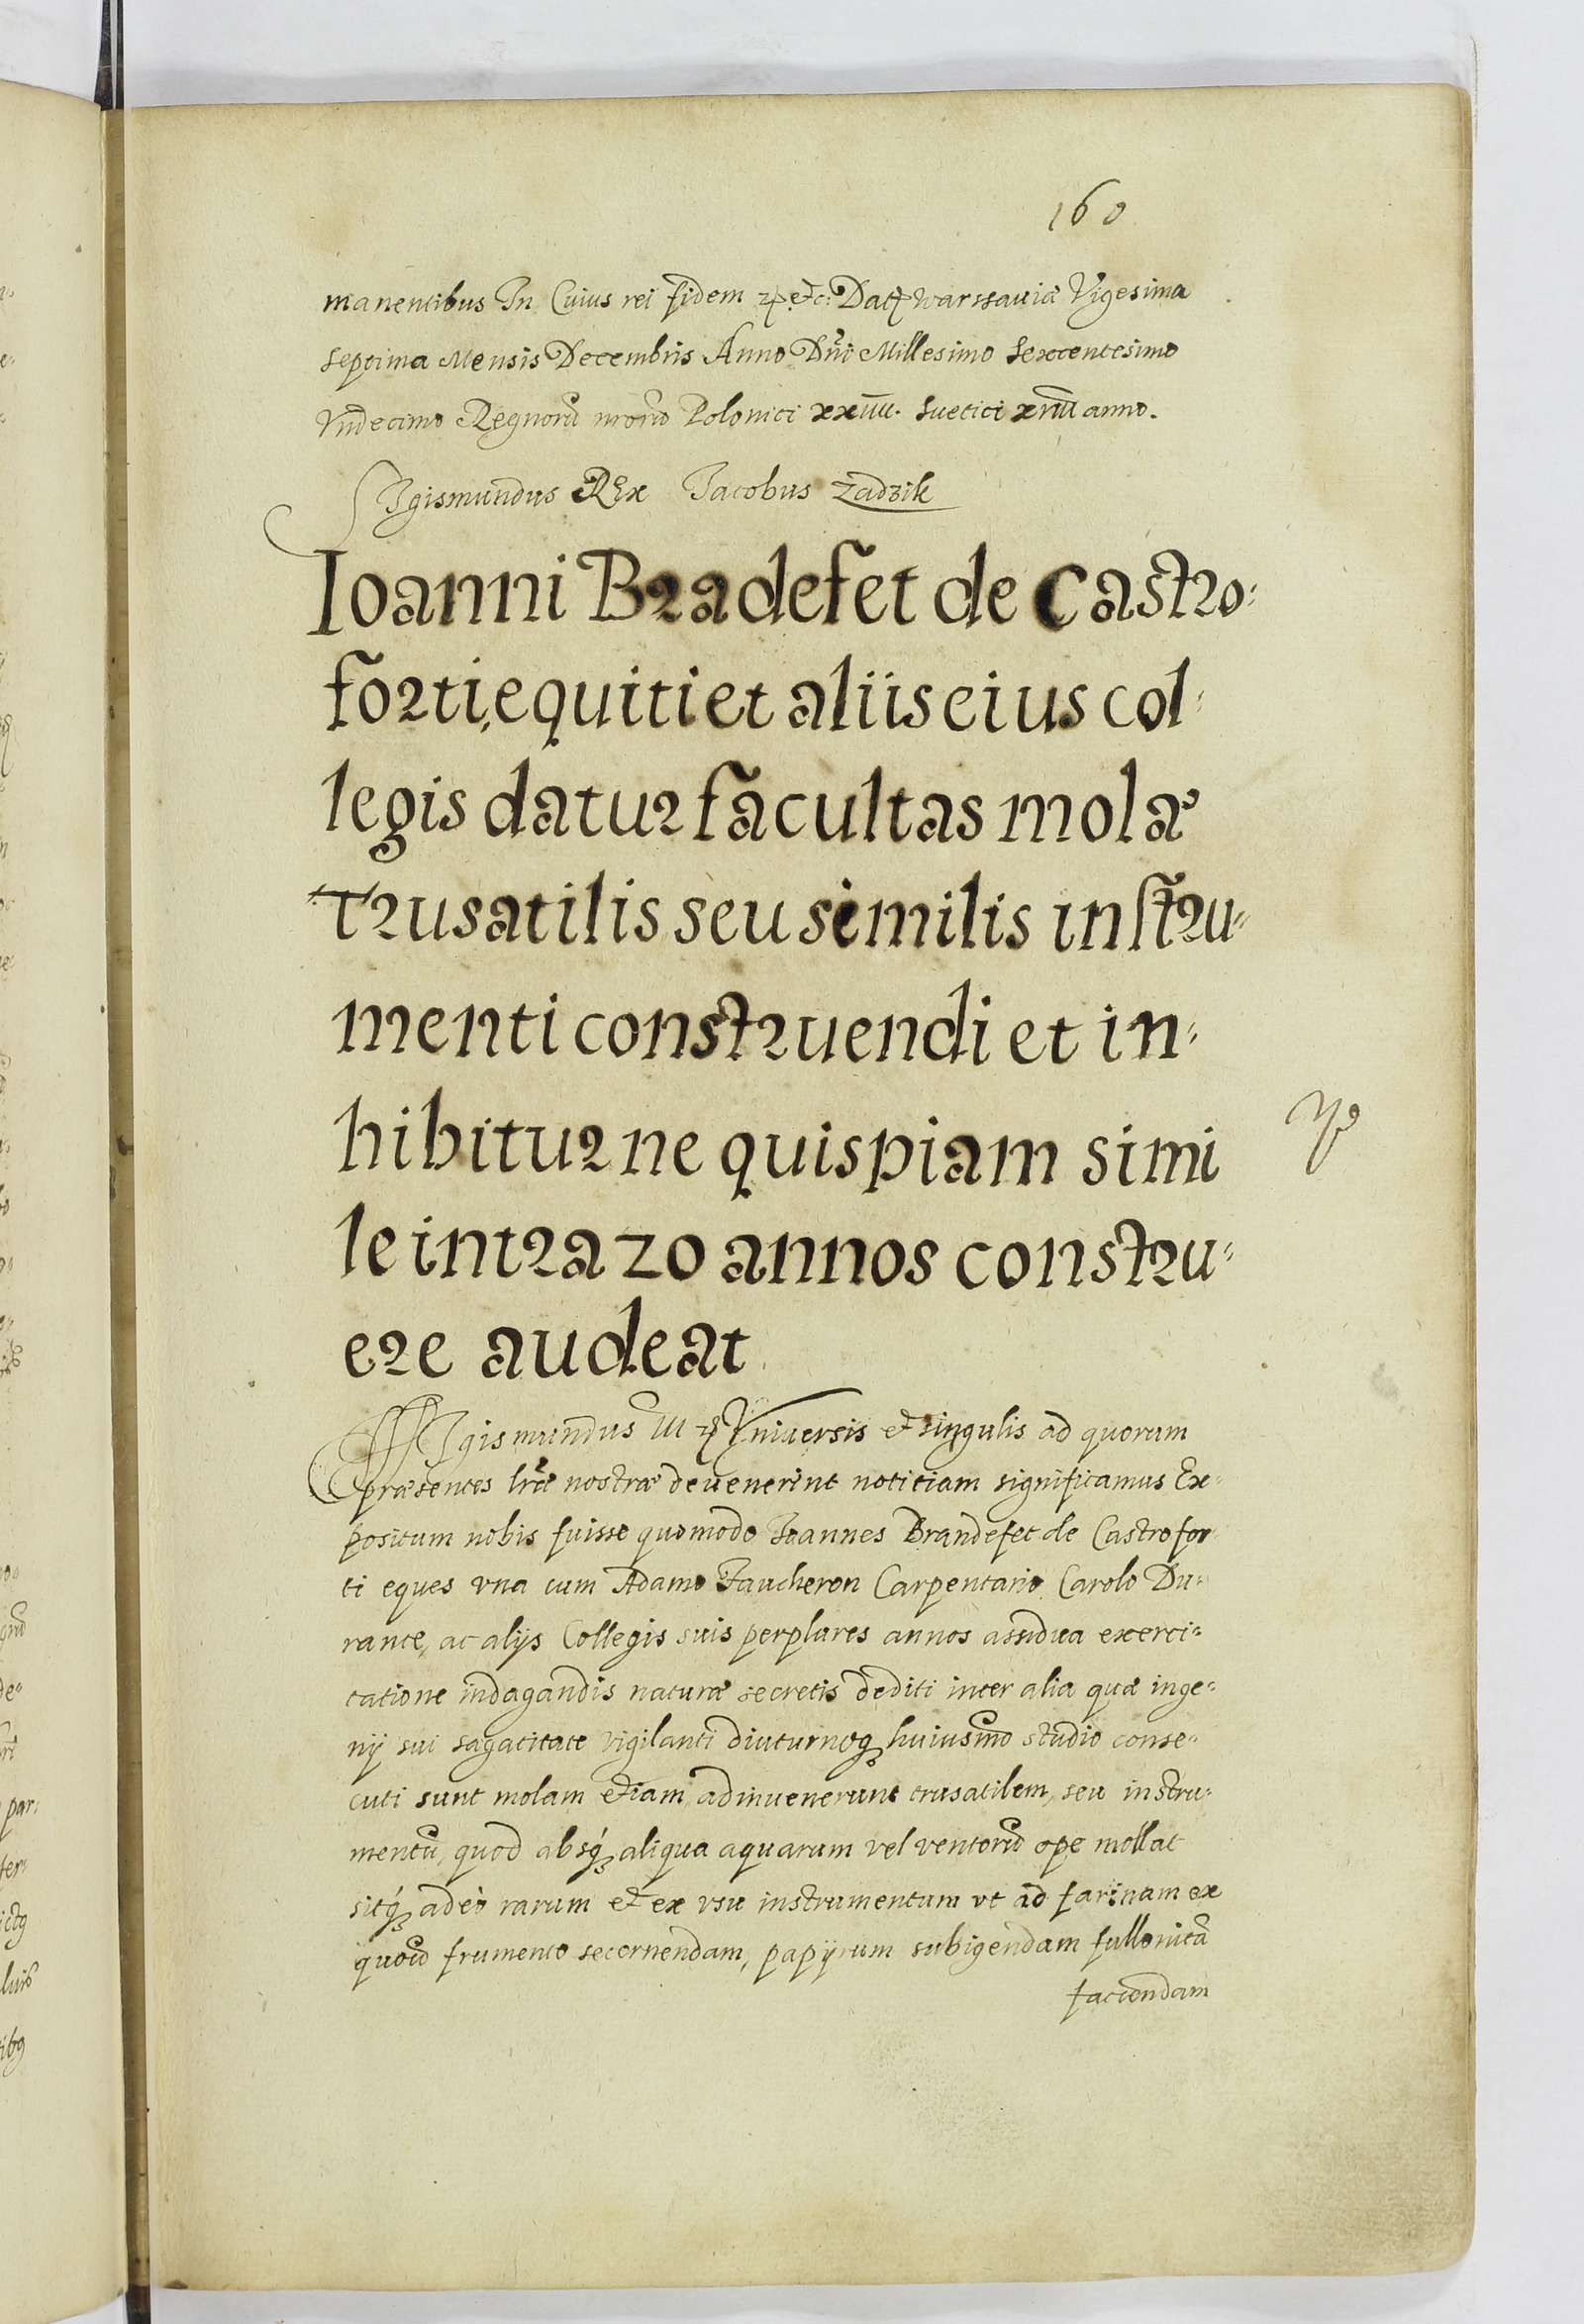 160
manentibus In Cuius rei fidem etc: Dat Warssaviæ Vigesima
septima Mensis Decembris Anno Dñi Millesimo Sexcentesimo
Vndecimo Regnorū nrorū Polonici xxiiii. Suetici xviii anno.
Sigismundus REx Jacobus Zadzik
Ioanni Bradefet de Castro:
forti, equiti et aliis eius col-
legis datur facultas molæ
Trusatilis seu similis instru-
menti construendi et in-
hibitur ne quispiam simi
le intra 20 annos constru-
ere audeat
SIgismundus III Vniversis et singulis ad quorum
præsentes lræ nostræ devenerint notitiam significamus Ex-
positum nobis fuisse quomodo Joannes Brandefet de Castrofor
ti eques vna cum Adamo Faucheron Carpentario Carolo Du-
rante, ac alijs Collegis suis perplures annos assidua exerci-
tatione indagandis naturæ secretis dediti inter alia quæ inge-
nij sui sagacitate vigilanti diuturnoq; huiusmo studio conse-
cuti sunt molam etiam adinuenerunt trusatilem, seu instru-
mentū, quod absq; aliqua aquarum vel ventorū ope mollat
sitq; adeò rarum et ex vsu instrumentum vt ad farinam ex
quouis frumento secernendam, papijrum subigendam fullonicā
faciendam